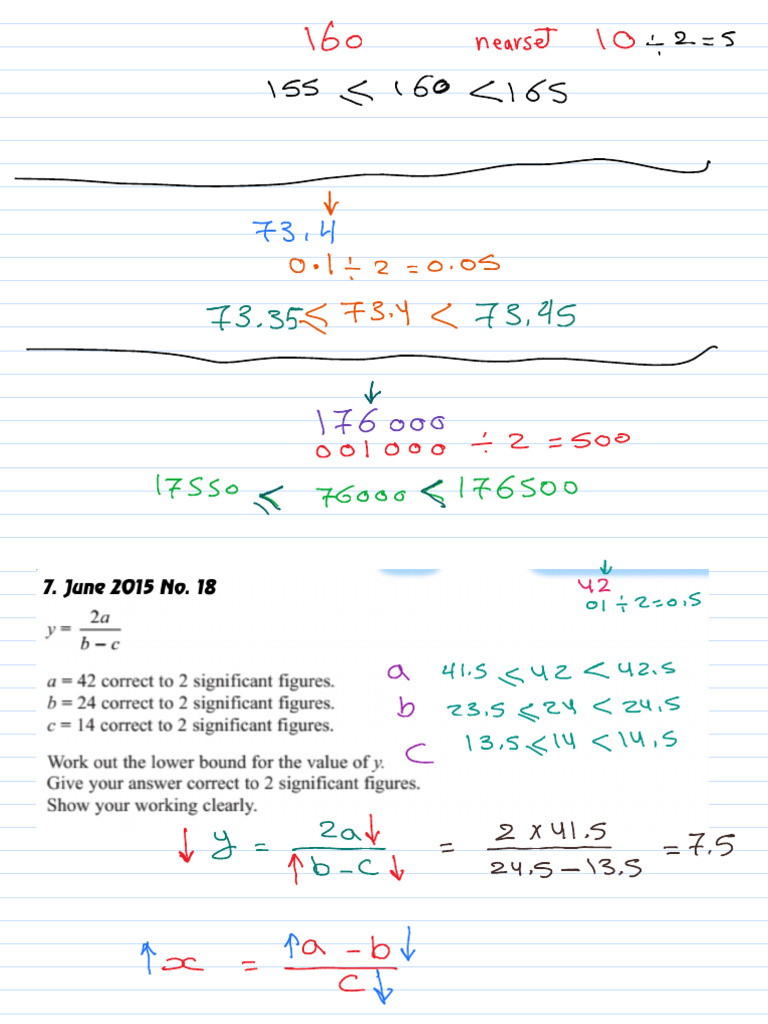 160 nearset 10 ÷ 2 = 5
155 ≤ 160 < 165
↓
73.4
0.1 ÷ 2 = 0.05
73.35 ≤ 73.4 < 73.45
↓
176 000
001000 ÷ 2 = 500
17550 ≤ 76000 ≤ 176500
7. June 2015 No. 18
↓
42
01 ÷ 2 = 0.5
y = 2a / b – c
a = 42 correct to 2 significant figures.
b = 24 correct to 2 significant figures.
c = 14 correct to 2 significant figures.
a 41.5 ≤ 42 < 42.5
b 23.5 ≤ 24 < 24.5
c 13.5 ≤ 14 < 14.5
Work out the lower bound for the value of y.
Give your answer correct to 2 significant figures.
Show your working clearly.
↓ y = 2a↓ / ↑b – c↓ = 2 × 41.5 / 24.5 – 13.5 = 7.5
↑ x = ↑a – b↓ / c↓